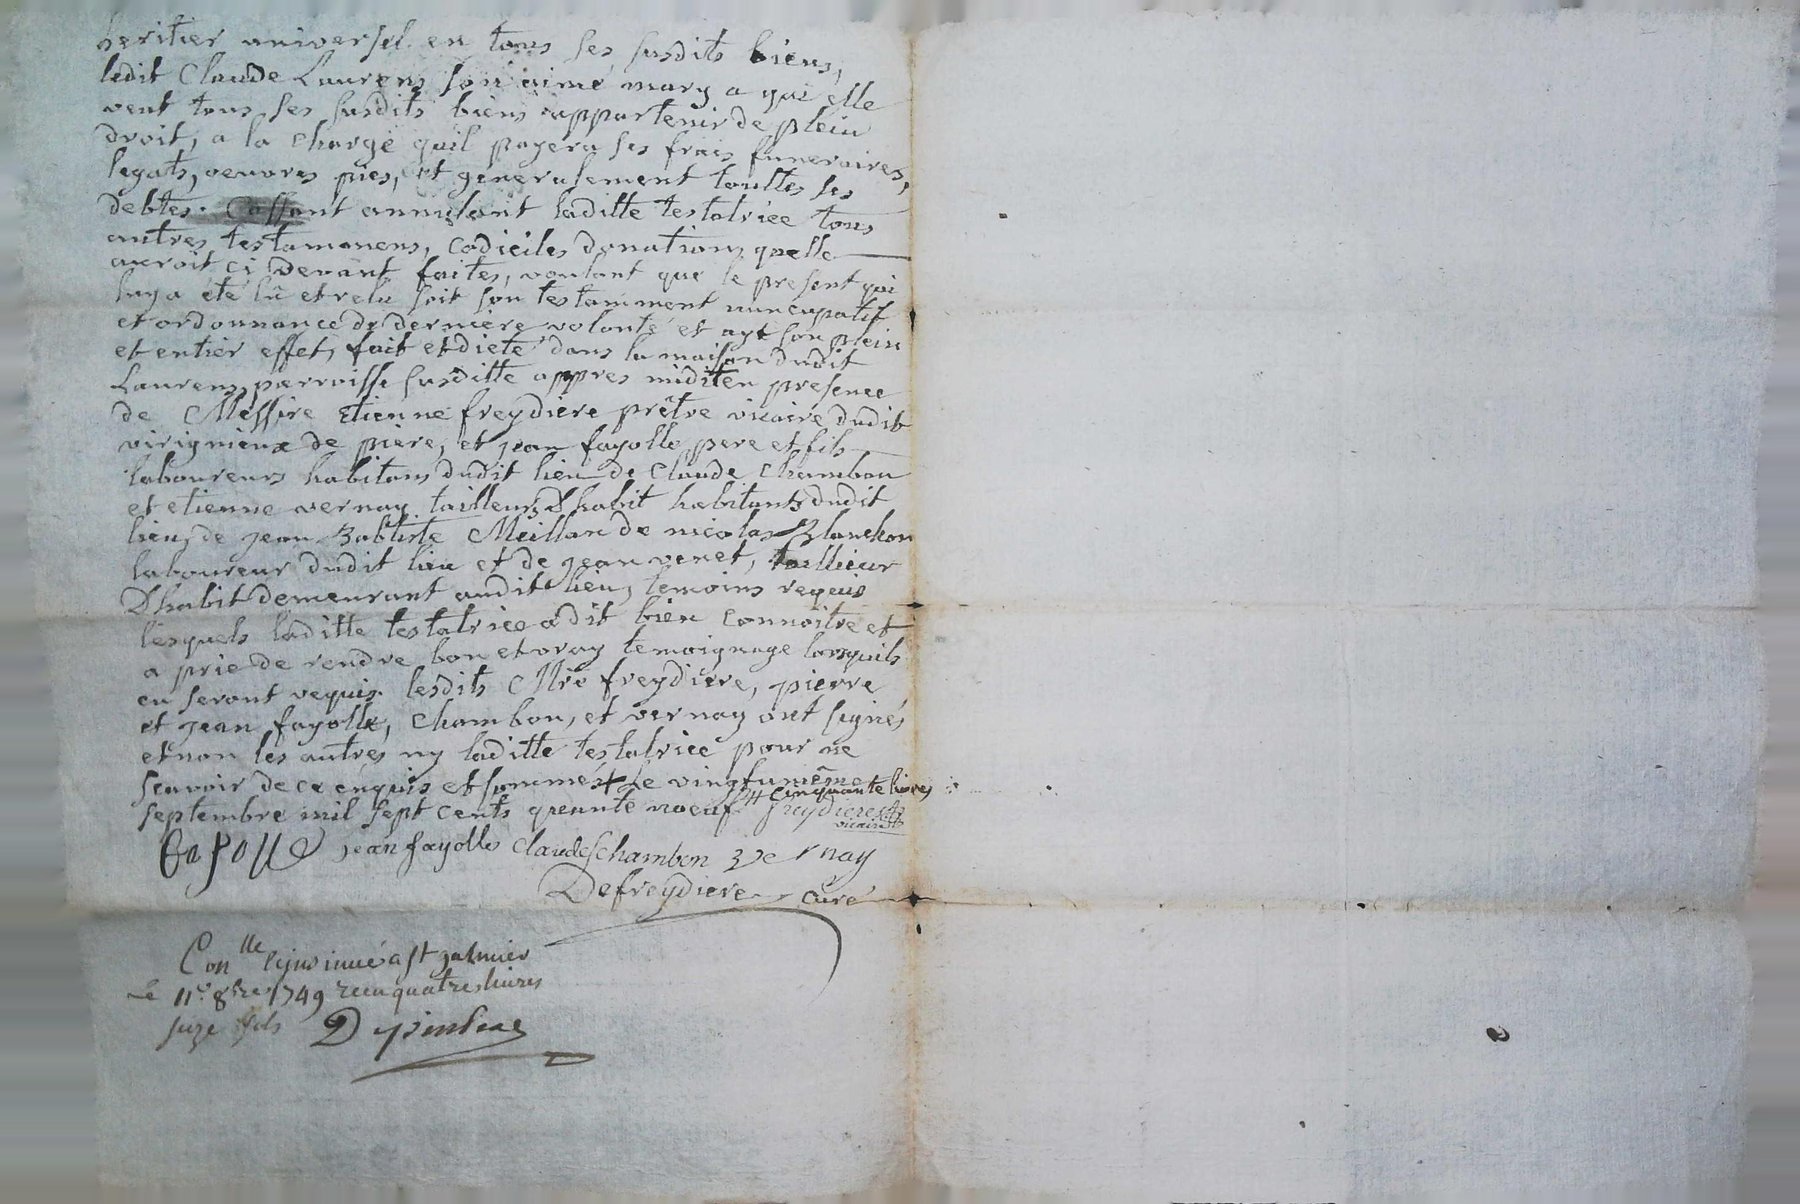 heritier universel en tous ses susdits biens,
ledit Claude Laurens son aimé mary a qui elle
veut tous ses susdits biens appartenir de plein
droit, a la charge quil payera ses frais funeraires,
legats, oeuvres pies, et generalement touttes ses
debtes. Cassant annulant laditte testatrice tous
autres testamenens, codiciles donations quelle
auroit ci devant faites, voulant que le present qui
luy a été lû et relu soit son testamment nuncupatif
et ordonnance de derniere volonté et ayt son plein
et entier effet, fait et dicté dans la maison dudit
Laurens, parroisse susditte appres midi en presence
de Messire Etienne freydiere prêtre vicaire dudit
virignieux de pière, et jean fayolle pere et fils
laboureurs habitans dudit lieu de Claude Chambon
et etienne vernay tailleurs Dhabit habitants dudit
lieu, de jean Babtiste Meilland de nicolas Blanchon
laboureur dudit lieu et de jean venet, taillieur
Dhabit demeurant audit lieu, temoins requis
lesquels laditte testatrice a dit bien connoitre et
a prié de rendre bon et vray temoignage lorsquils
en seront requis. lesdits Mre freydiere, pierre
et jean fayolle, Chambon, et vernay ont signés
et non les autres ny laditte testatrice pour ne
scavoir de ce enquis et sommés + Le vingtunième
+ cinquante livres
septembre mil sept cents quarante noeuf freydiere
vicaire
fayolle jean fayolle claude chambon vernay
Defreydiere curé
Conlle et insinué a st galmier
Le 11e 8bre 1749 recu quatres livres
suze sols